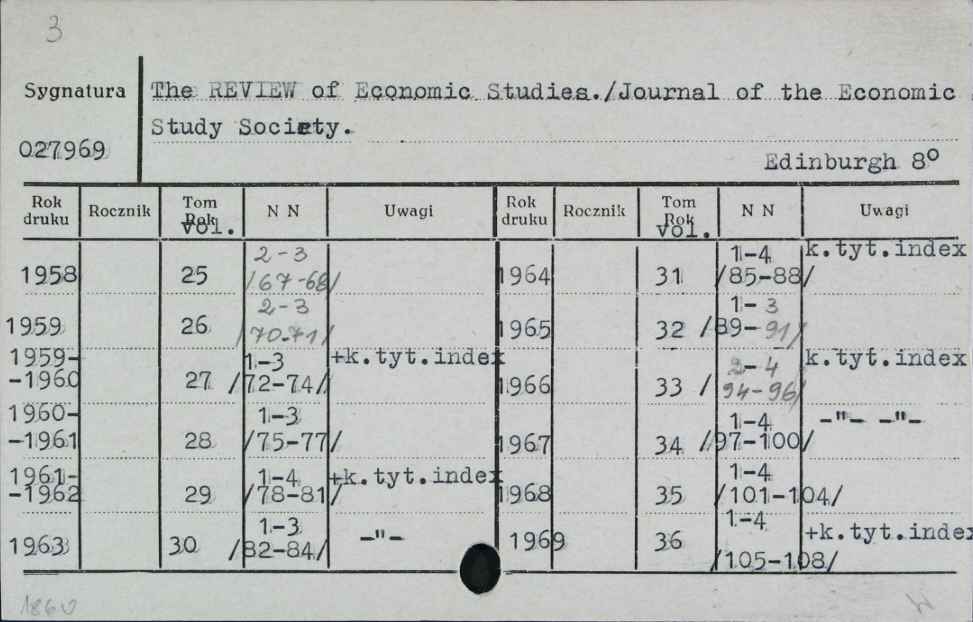 3
Sygnatura The REVIEW of Economic Studies./Journal of the Economic
Study Society.
027969
Edinburgh 8º
Rok druku Rocznik Tom Rok vol. N N Uwagi Rok druku Rocznik Tom Rok vol. N N Uwagi
1958 25 2-3 /67-68/
1959 26 2-3 /70-71/
1959-
-1960 27 1-3 /72-74/ +k.tyt.index
1960-
-1961 28 1-3 /75-77/
1961-
-1962 29 1-4 /78-81/ +k.tyt.index
1963 30 1-3 /82-84/ -"-
1964 31 1-4 /85-88/ k.tyt.index
1965 32 1-3 /89-91/
1966 33 2-4 /94-96/ k.tyt.index
1967 34 1-4 /97-100/ -"- -"-
1968 35 1-4 /101-104/
1969 36 1-4 /105-108/ +k.tyt.index
1860